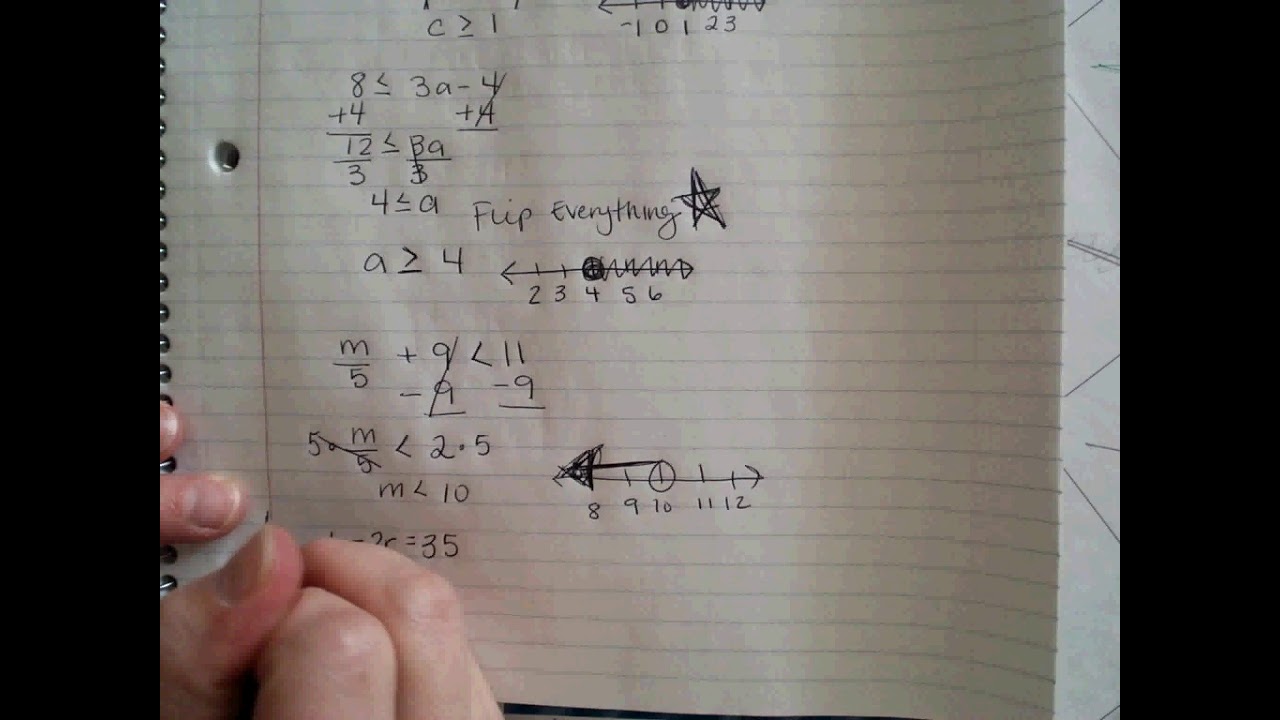 c ≥ 1
-1 0 1 2 3
8 ≤ 3a - 4
+4 +4
12 ≤ 3a
3 3
4 ≤ a Flip Everything
a ≥ 4
2 3 4 5 6
m/5 + 9 < 11
- 9 -9
5 · m/5 < 2 · 5
m < 10
8 9 10 11 12
=35